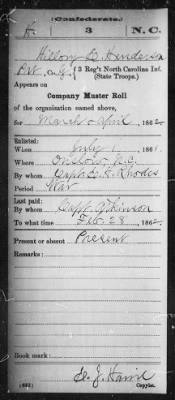 (Confederate.)
H 3 N.C.
Hillory B. Henderson
Pvt, Co. , 3 Reg't North Carolina Inf.
(State Troops.)
Appears on
Company Muster Roll
of the organization named above,
for March & April, 1862.
Enlisted:
When July 1, 1861.
Where Onslow, N.C.
By whom Capt. E. H. Rhodes
Period War
Last paid:
By whom Capt. Wilkinson
To what time Feb. 28, 1862.
Present or absent Present
Remarks:
Book mark:
(642) Copyist.